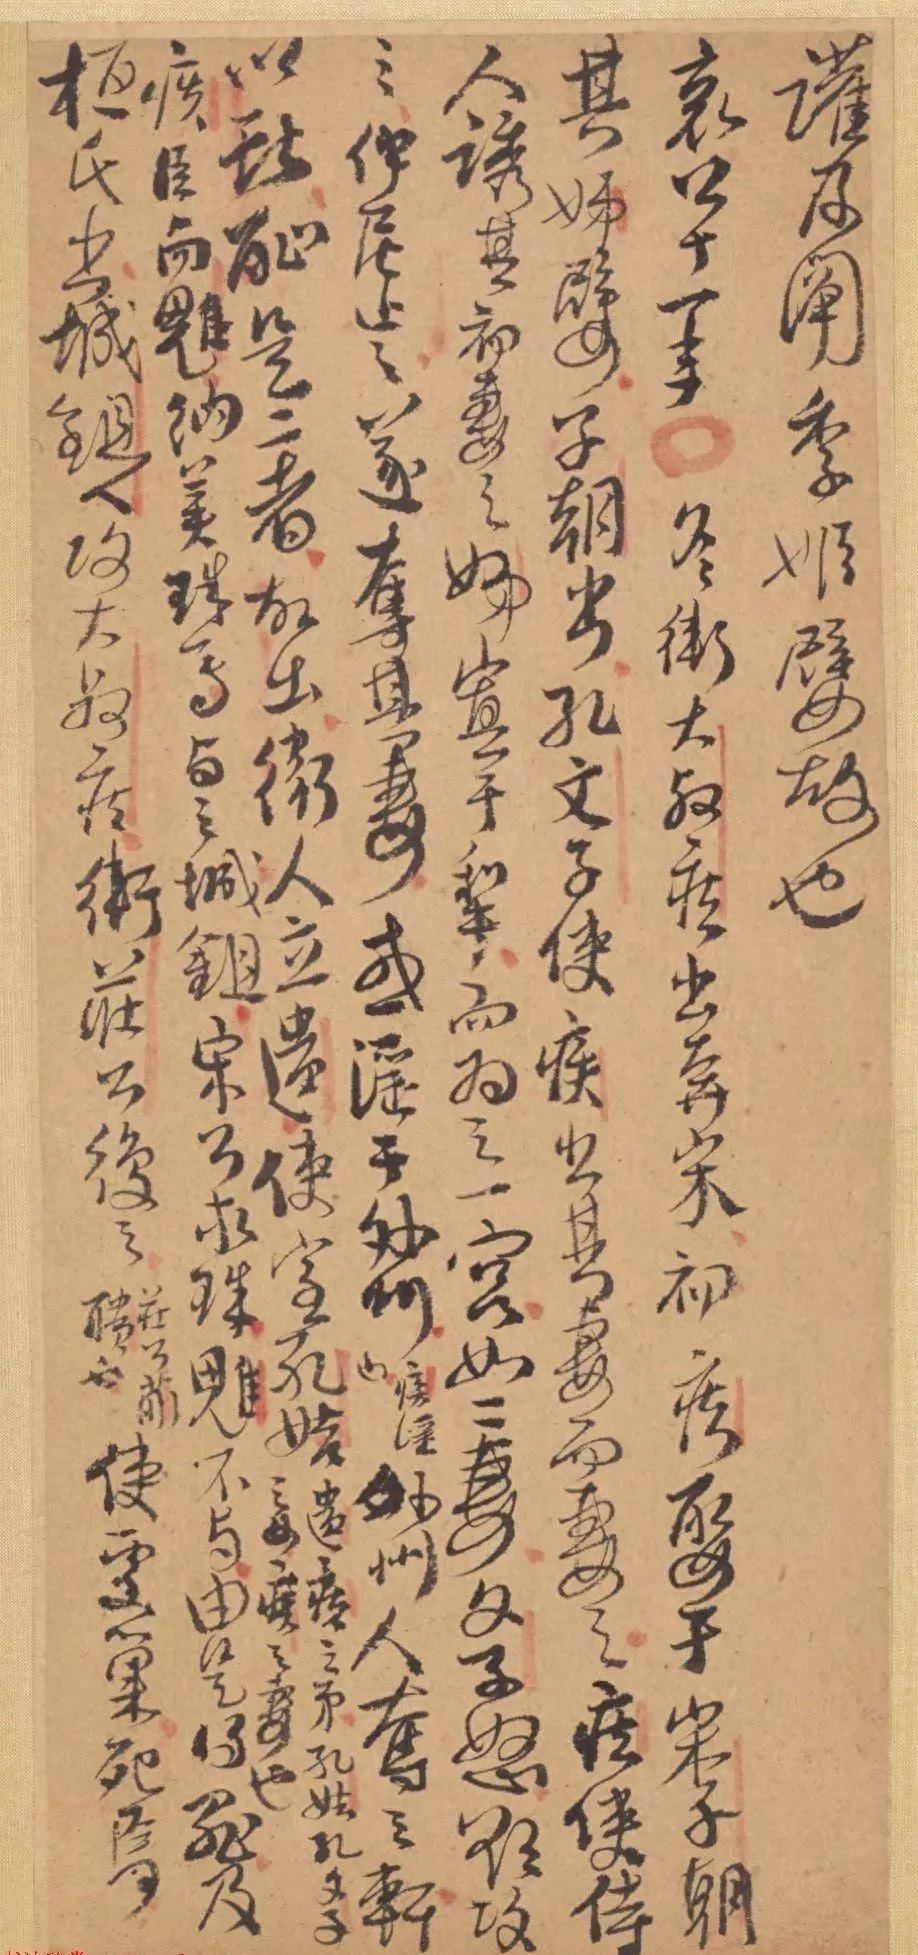 讙及闡季姬嬖故也
哀公十一年冬衛大叔疾出奔宋初疾娶于宋子朝
其娣嬖子朝出孔文子使疾出其妻而妻之疾使侍
人誘其初妻之娣寘于犂而為之一宮如二妻文子怒欲攻
之仲尼止之遂奪其妻或淫于外州疾淫外州人奪之軒
也
以獻恥是二者故出衛人立遺使室孔姞遺疾之弟孔姞孔文子
之女疾之妻也
疾臣向魋納美珠焉與之城鉏宋公求珠魋不與由是得罪及
桓氏出城鉏人攻大叔疾衛莊公復之莊公蒯
聵也使處巢死焉